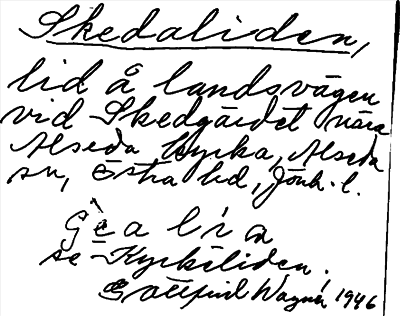 Skedaliden,
lid å landsvägen
vid Skedgärdet nära
Alseda kyrka, Alseda
sn, Östra hd, Jönk. l.
se Kyrkeliden.
Gottfrid Wagnér 1946